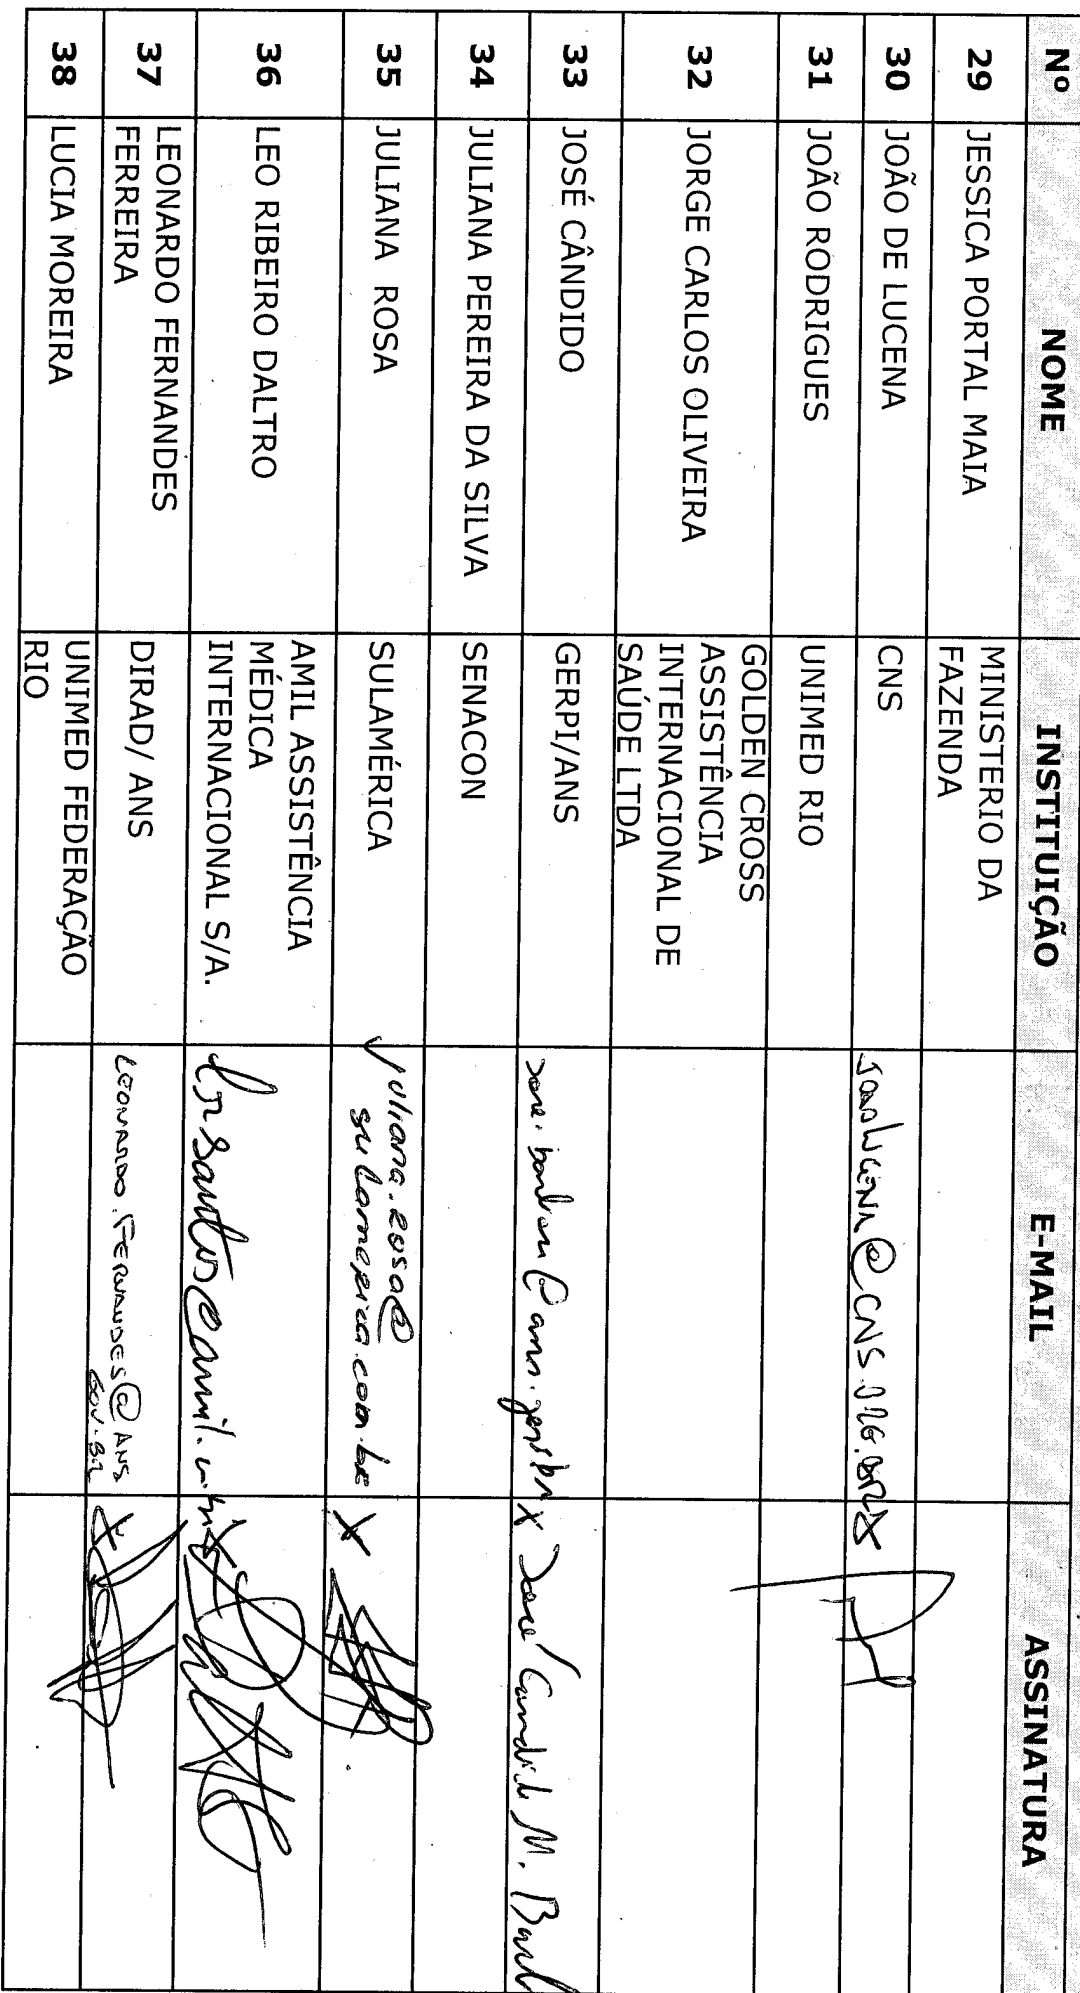 Nº NOME INSTITUIÇÃO E-MAIL ASSINATURA
29 JESSICA PORTAL MAIA MINISTERIO DA
FAZENDA
30 JOÃO DE LUCENA CNS
31 JOÃO RODRIGUES UNIMED RIO
32 JORGE CARLOS OLIVEIRA GOLDEN CROSS
ASSISTÊNCIA
INTERNACIONAL DE
SAÚDE LTDA
33 JOSÉ CÂNDIDO GERPI/ANS X José Candido M.
34 JULIANA PEREIRA DA SILVA SENACON
35 JULIANA ROSA SULAMÉRICA juliana.rosa@ X
sulamerica.com.br
36 LEO RIBEIRO DALTRO AMIL ASSISTÊNCIA
MÉDICA
INTERNACIONAL S/A. X
37 LEONARDO FERNANDES
FERREIRA DIRAD/ ANS LEONARDO.FERNANDES@ANS X
GOV.BR
38 LUCIA MOREIRA UNIMED FEDERAÇÃO
RIO